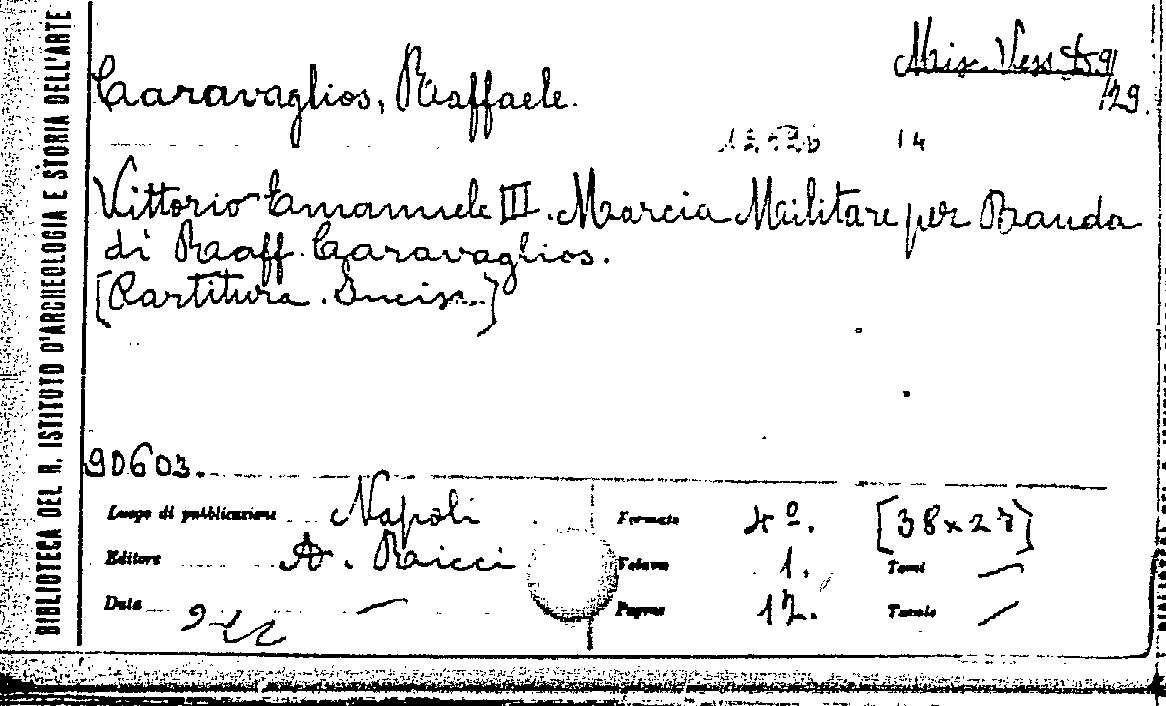 BIBLIOTECA DEL R. ISTITUTO D'ARCHEOLOGIA E STORIA DELL'ARTE
Caravaglios, Raffaele.
Misc. Vess. D 9/
/29.
14
Vittorio Emanuele III. Marcia Militare per Banda
di Raff. Caravaglios.
[Partitura. Incisa.]
90603.
Luogo di pubblicazione Napoli
Formato 4º. [38x27]
Editore A. Ricci
Volume 1. Tomi —
Data —
Pagine 12. Tavole —